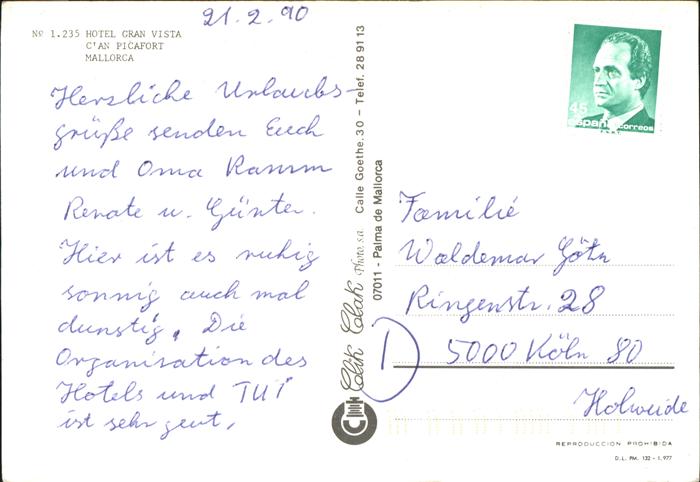 21.2.90
Nº 1.235 HOTEL GRAN VISTA
C'AN PICAFORT
MALLORCA
Herzliche Urlaubs-
grüße senden Euch
und Oma Ramm
Renate u. Günter.
Hier ist es ruhig
sonnig auch mal
dunstig. Die
Organisation des
Hotels und TUI
ist sehr gut,
Clik Clak Photo, s.a. Calle Goethe, 30 – Telef. 28 91 13
07011 - Palma de Mallorca
45
España correos
Familie
Waldemar Götn
Ringenstr. 28
D 5000 Köln 80
Holweide
REPRODUCCION PROHIBIDA
D.L. PM. 132 - 1.977